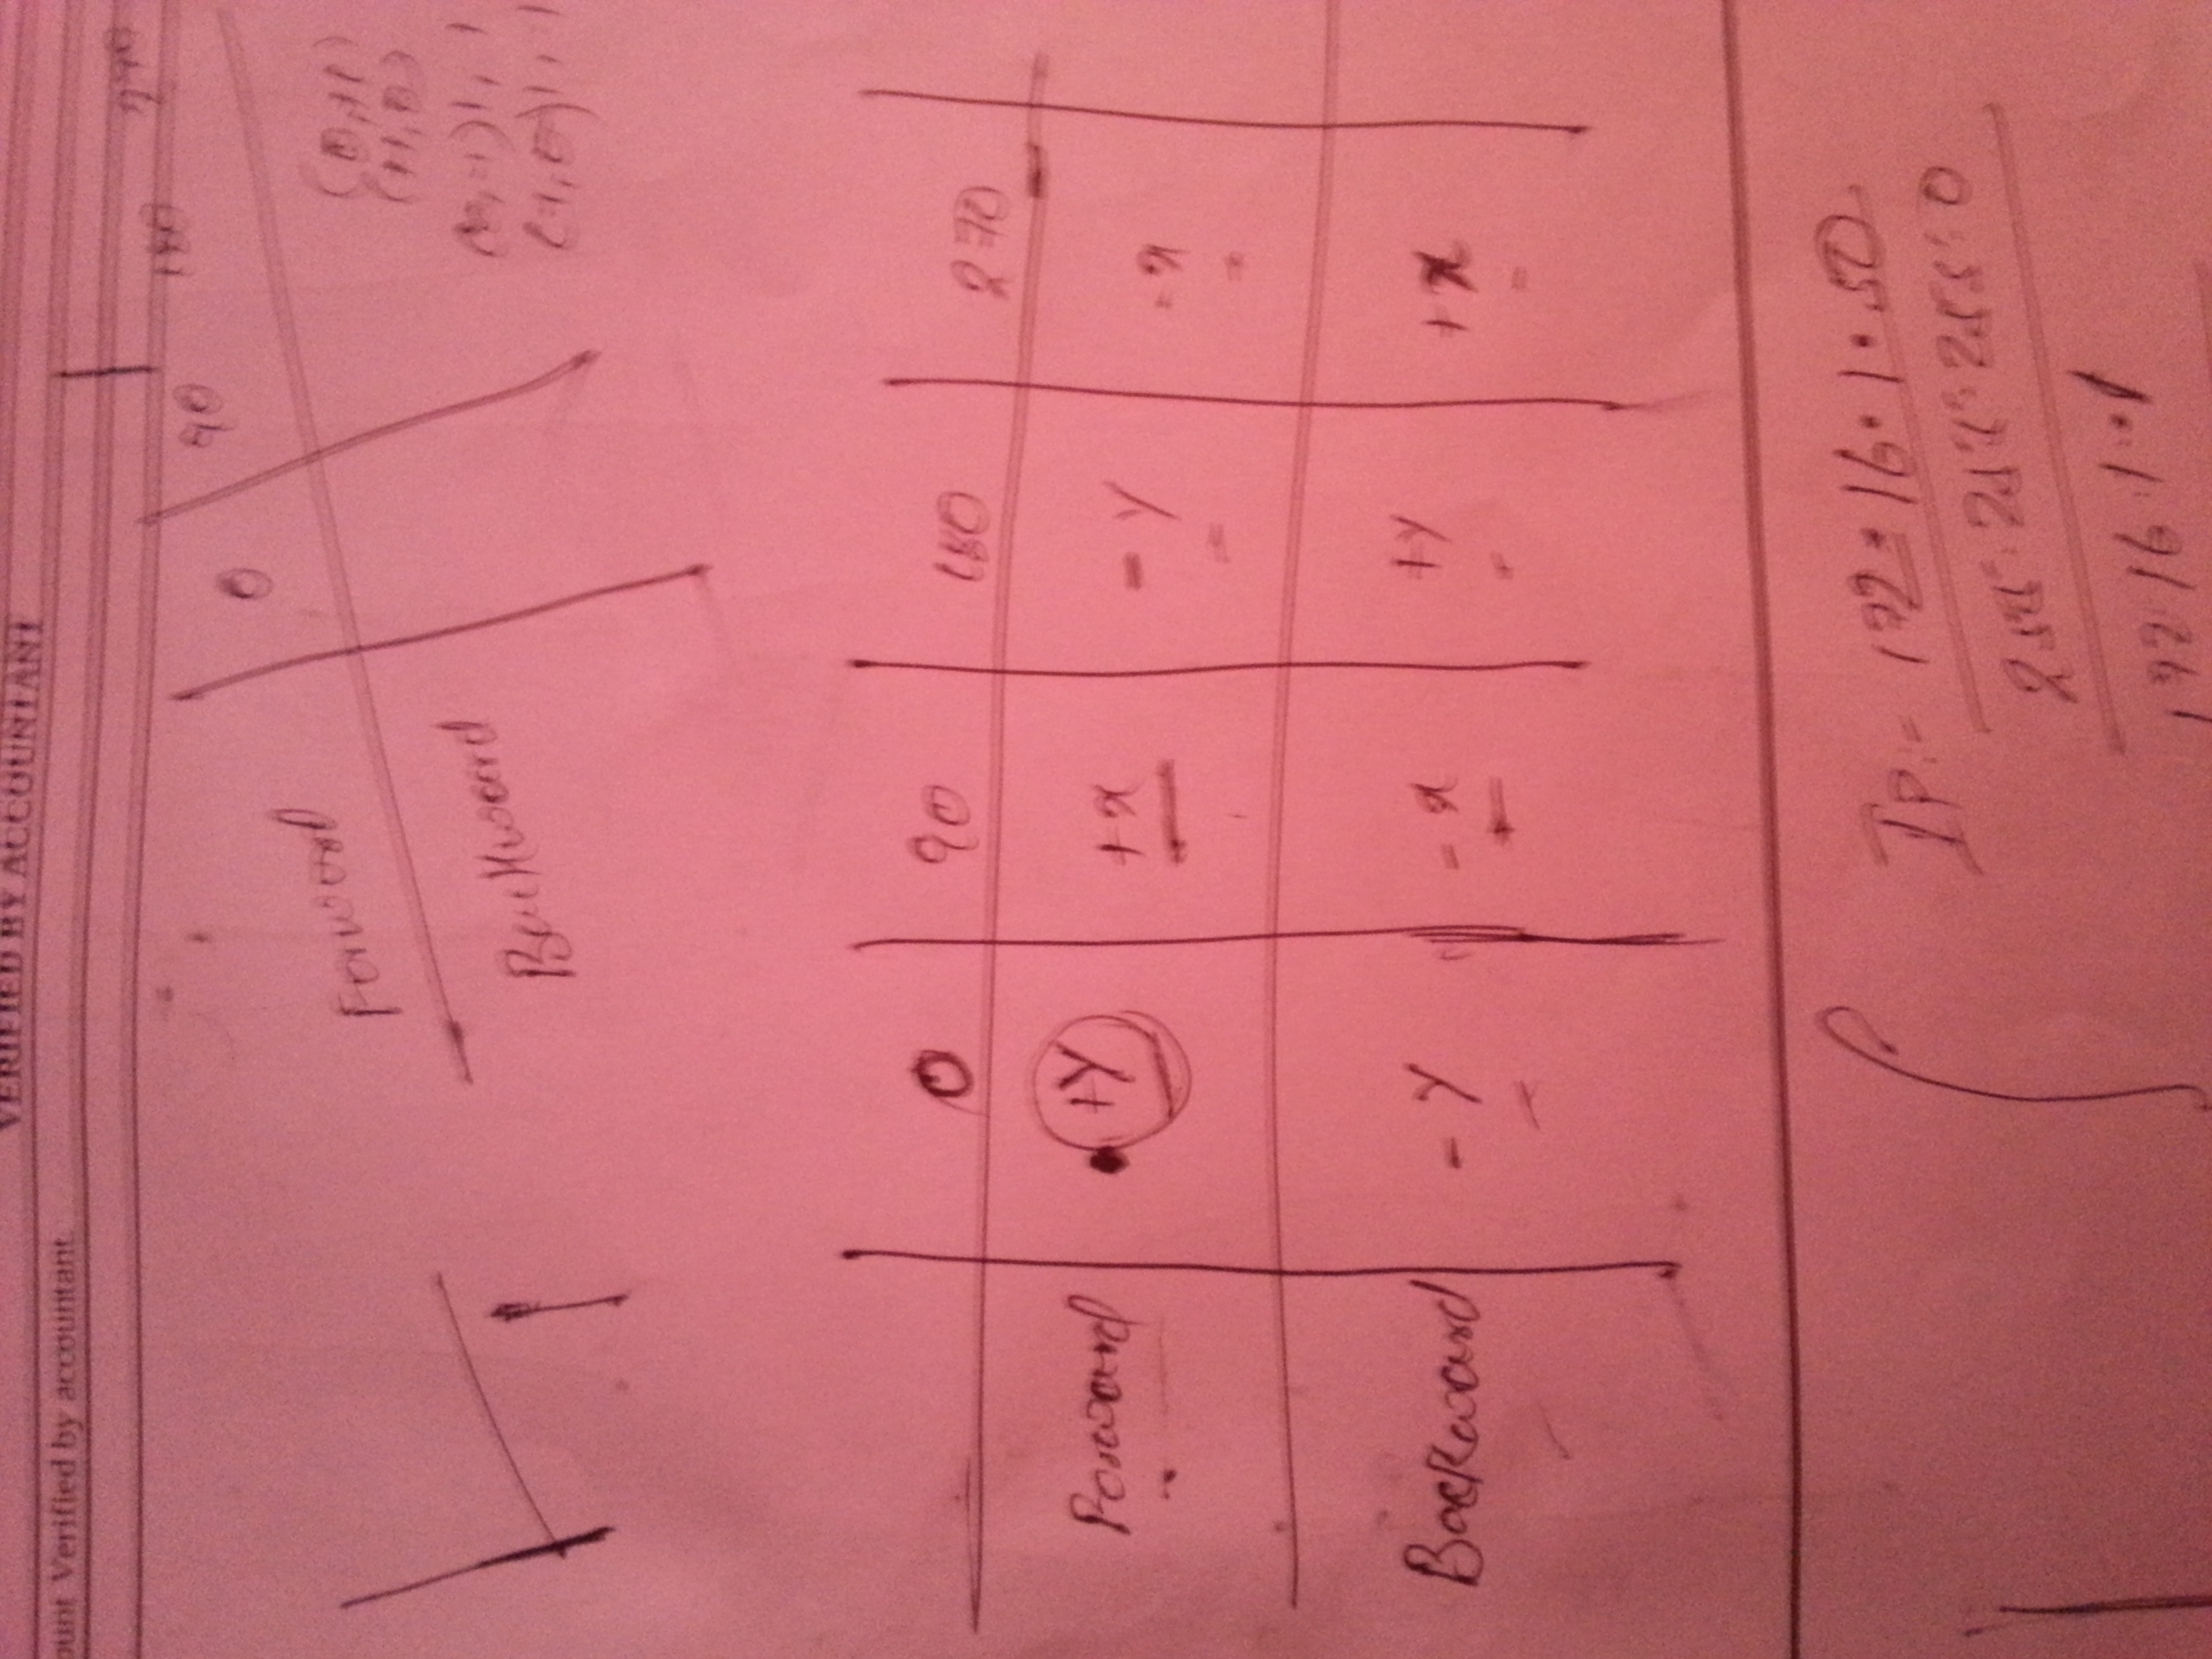 VERIFIED BY ACCOUNTANT
ount Verified by accountant.
0 90 180 270
Forward
Backward
(0,+1)
(+1,0)
(0,-1) 1, 1
(-1,0) 1, -1
0 90 180 270
Forward +Y +x - Y - x
Backward - Y - x +Y + x
IP:- 172.16.1.50
255.255.255.0
172 16.1.1